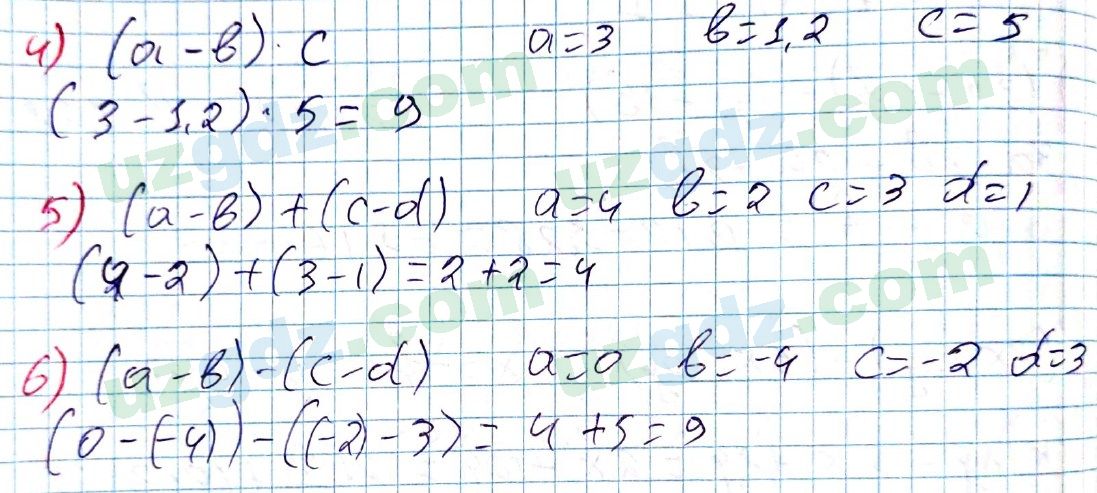 4) (a-b)·c a=3 b=1,2 c=5
(3-1,2)·5=9
5) (a-b)+(c-d) a=4 b=2 c=3 d=1
(4-2)+(3-1)=2+2=4
6) (a-b)-(c-d) a=0 b=-4 c=-2 d=3
(0-(-4))-((-2)-3)=4+5=9
uzgdz.com
uzgdz.com
uzgdz.com
uzgdz.com